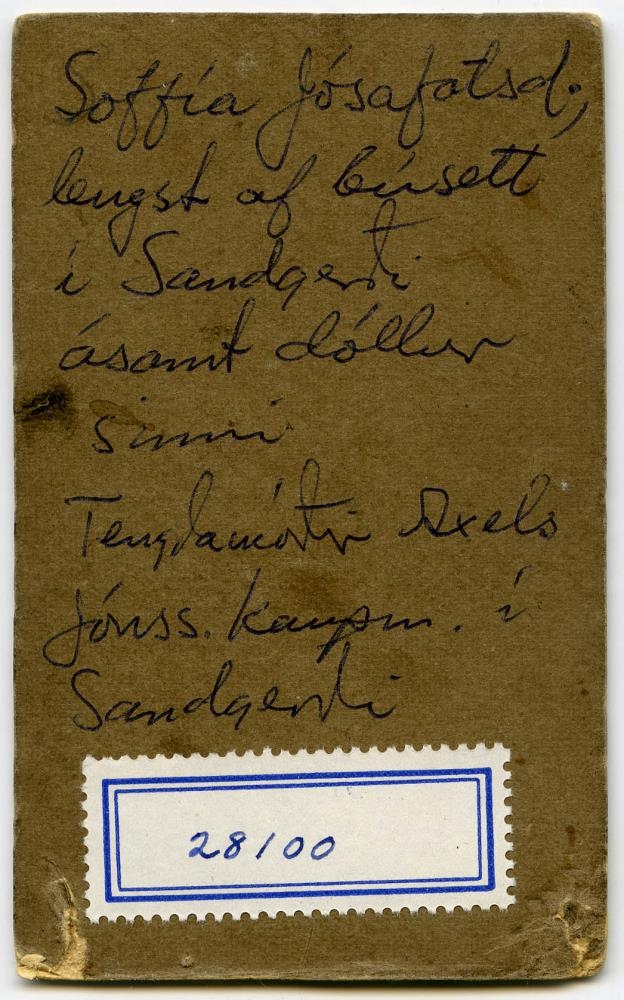 Soffía Jósafatsd.,
lengst af búsett
í Sandgerði
ásamt dóttur
sinni
Tengdamóðir Axels
Jónss. kaupm. í
Sandgerði
28100